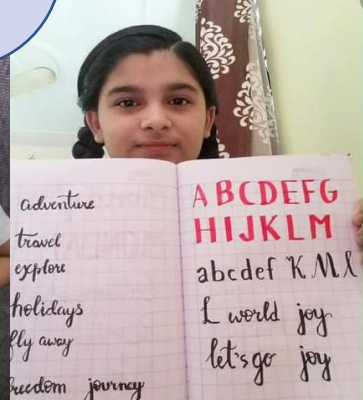 adventure
travel
explore
holidays
fly away
freedom journey
ABCDEFG
HIJKLM
abcdef K M l
L world joy
let's go joy